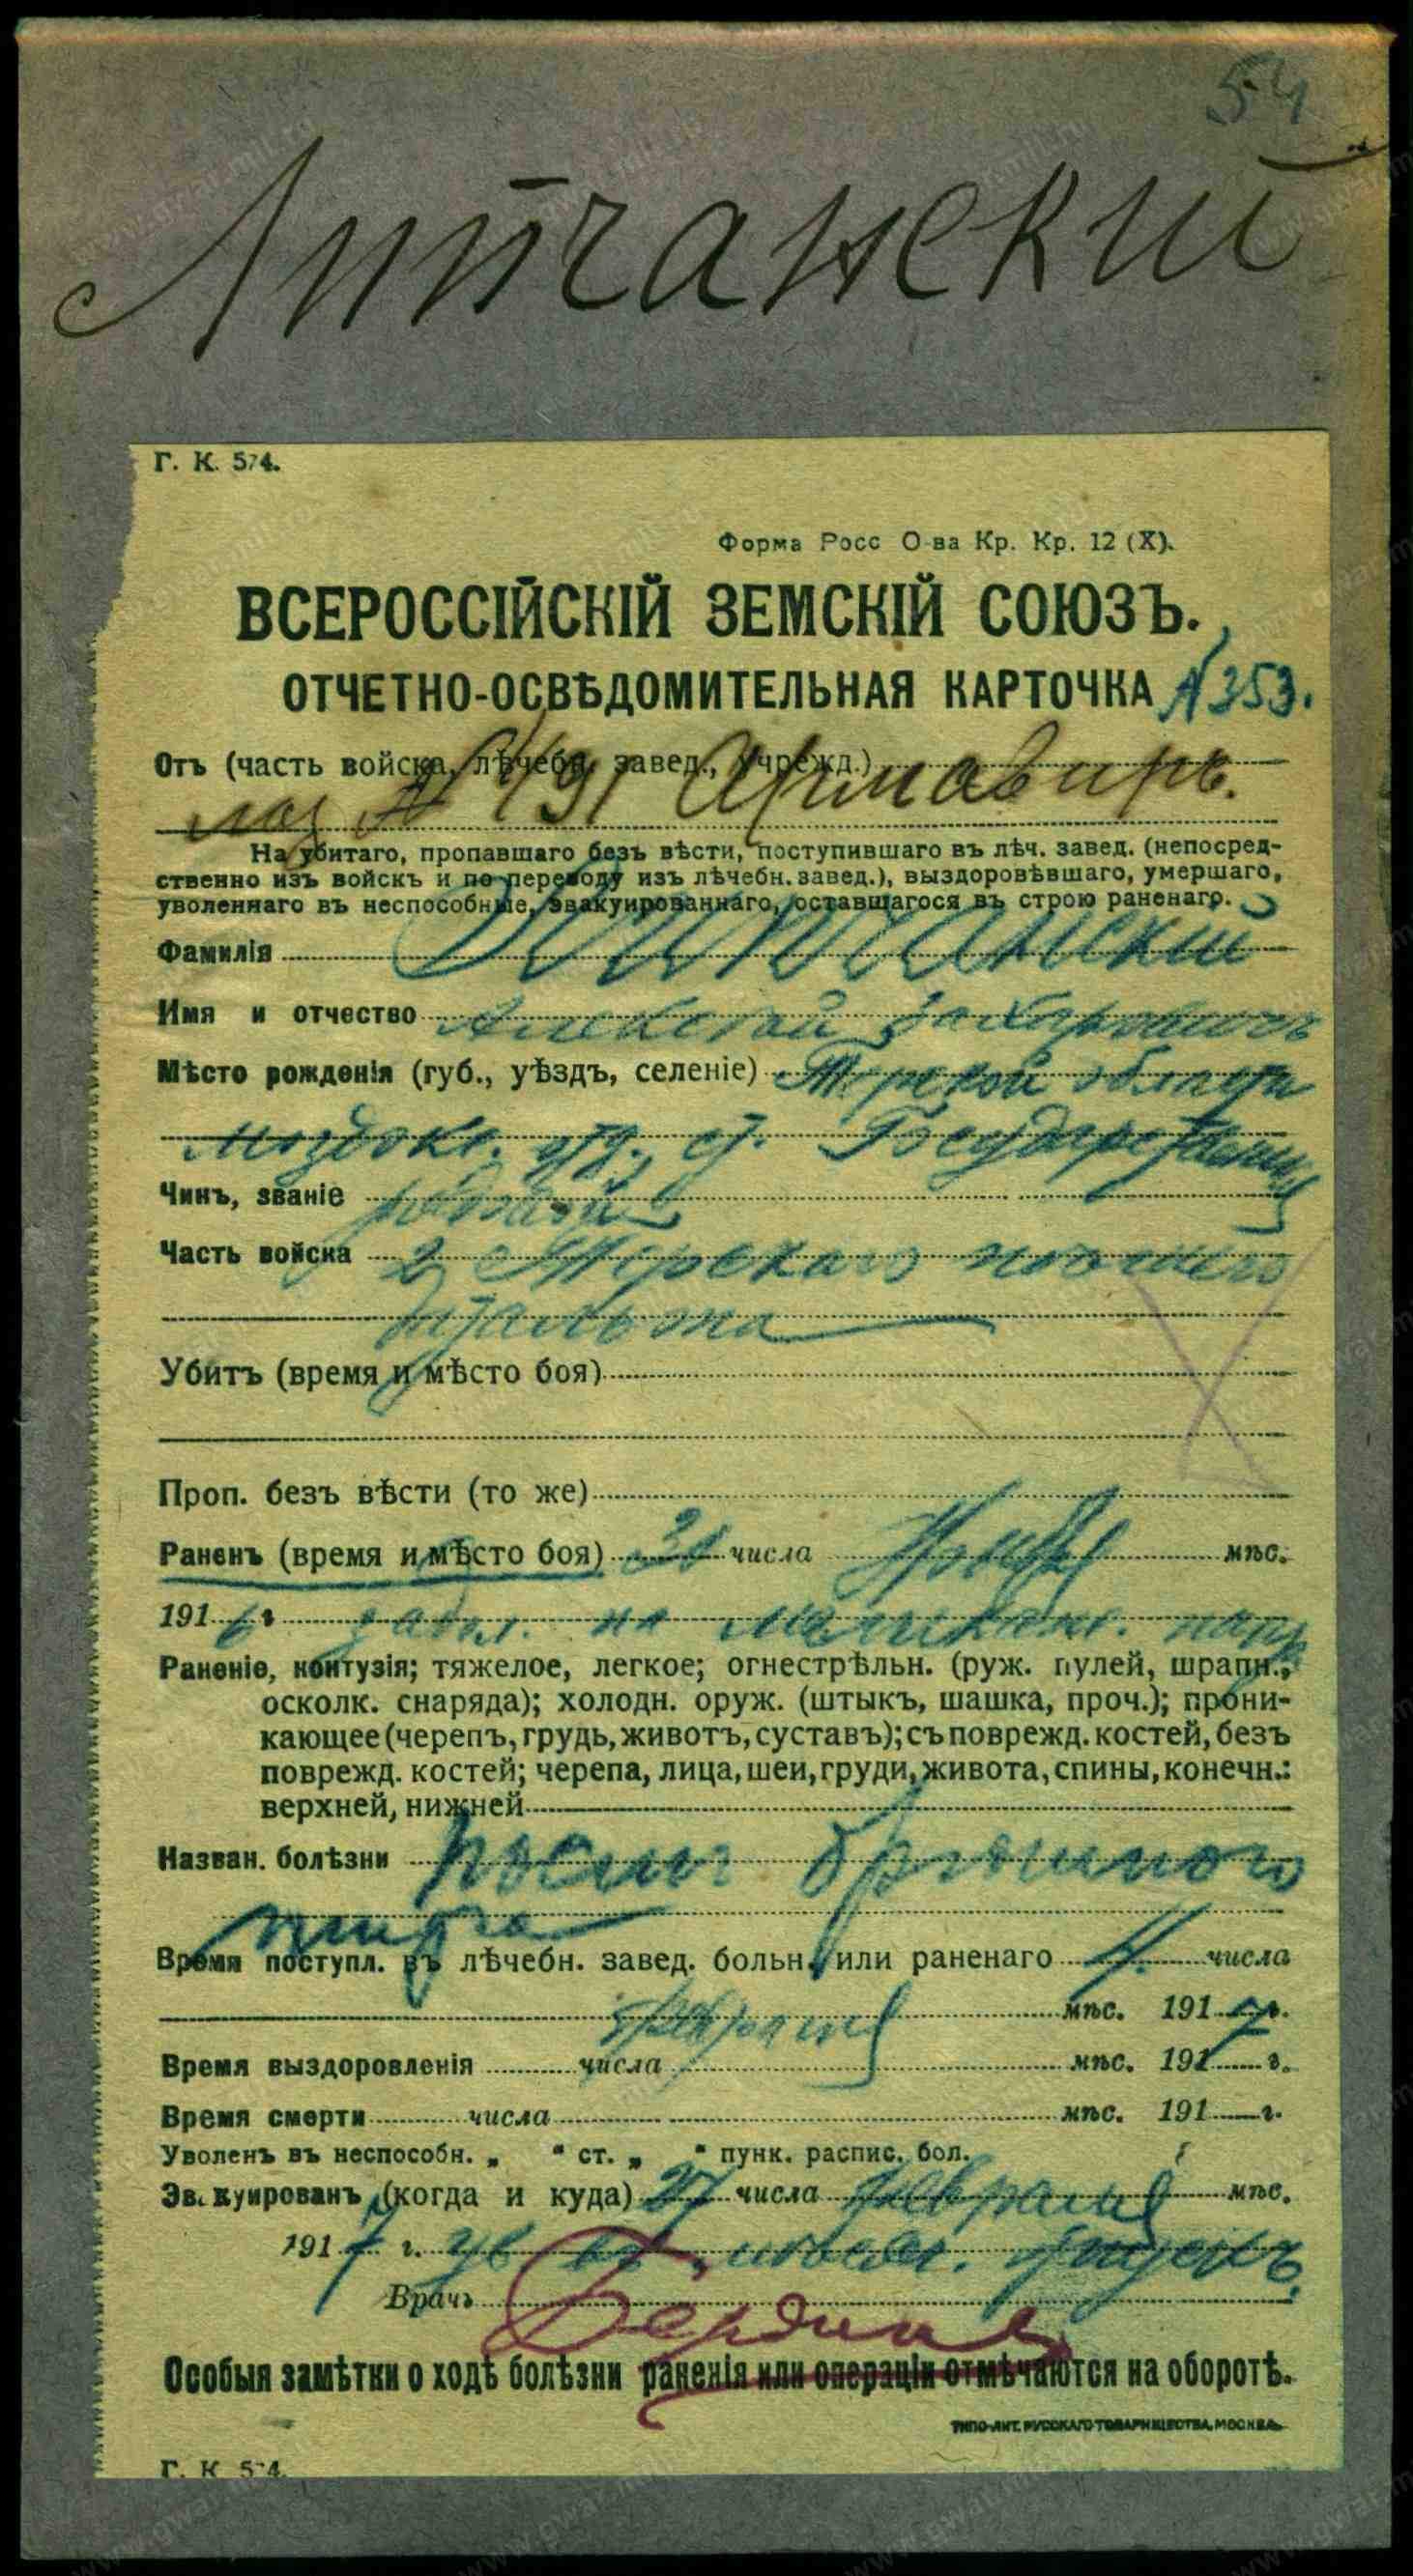 54
Липчанский
Г. К. 574.
Форма Росс О-ва Кр. Кр. 12 (X).
ВСЕРОССІЙСКІЙ ЗЕМСКІЙ СОЮЗЪ.
ОТЧЕТНО-ОСВѢДОМИТЕЛЬНАЯ КАРТОЧКА №353.
Отъ (часть войска, лѣчебн. завед., учрежд.)
лаз № 191 Армавиръ.
На убитаго, пропавшаго безъ вѣсти, поступившаго въ лѣч. завед. (непосред-
ственно изъ войскъ и по переводу изъ лѣчебн. завед.), выздоровѣвшаго, умершаго,
уволеннаго въ неспособные, эвакуированнаго, оставшагося въ строю раненаго.
Фамилія Липчанский
Имя и отчество Алексѣй Захаровичъ
Мѣсто рожденія (губ., уѣздъ, селеніе) Терской области
Моздокс. отд., ст.
Чинъ, званіе рядовой
Часть войска 2 Терскаго
баталіона
Убитъ (время и мѣсто боя)
Проп. безъ вѣсти (то же)
Раненъ (время и мѣсто боя) числа Ноября мѣс.
1916 г забол. на
Раненіе, контузія; тяжелое, легкое; огнестрѣльн. (руж. пулей, шрапн.,
осколк. снаряда); холодн. оруж. (штыкъ, шашка, проч.); прони-
кающее (черепъ, грудь, животъ, суставъ); съ поврежд. костей, безъ
поврежд. костей; черепа, лица, шеи, груди, живота, спины, конечн.:
верхней, нижней
Назван. болѣзни Послѣ брюшного
тифа
Время поступл. въ лѣчебн. завед. больн. или раненаго 4 числа
февраля мѣс. 1917 г.
Время выздоровленія числа мѣс. 191 г.
Время смерти числа мѣс. 191 г.
Уволенъ въ неспособн. „ “ ст. „ “ пунк. распис. бол.
Эвакуированъ (когда и куда) 27 числа февраля мѣс.
1917 г. отпускъ.
Врачъ
Особыя замѣтки о ходѣ болѣзни раненія или операціи отмѣчаются на оборотѣ.
ТИПО-ЛИТ. РУССКАГО ТОВАРИЩЕСТВА, МОСКВА.
Г. К 574.